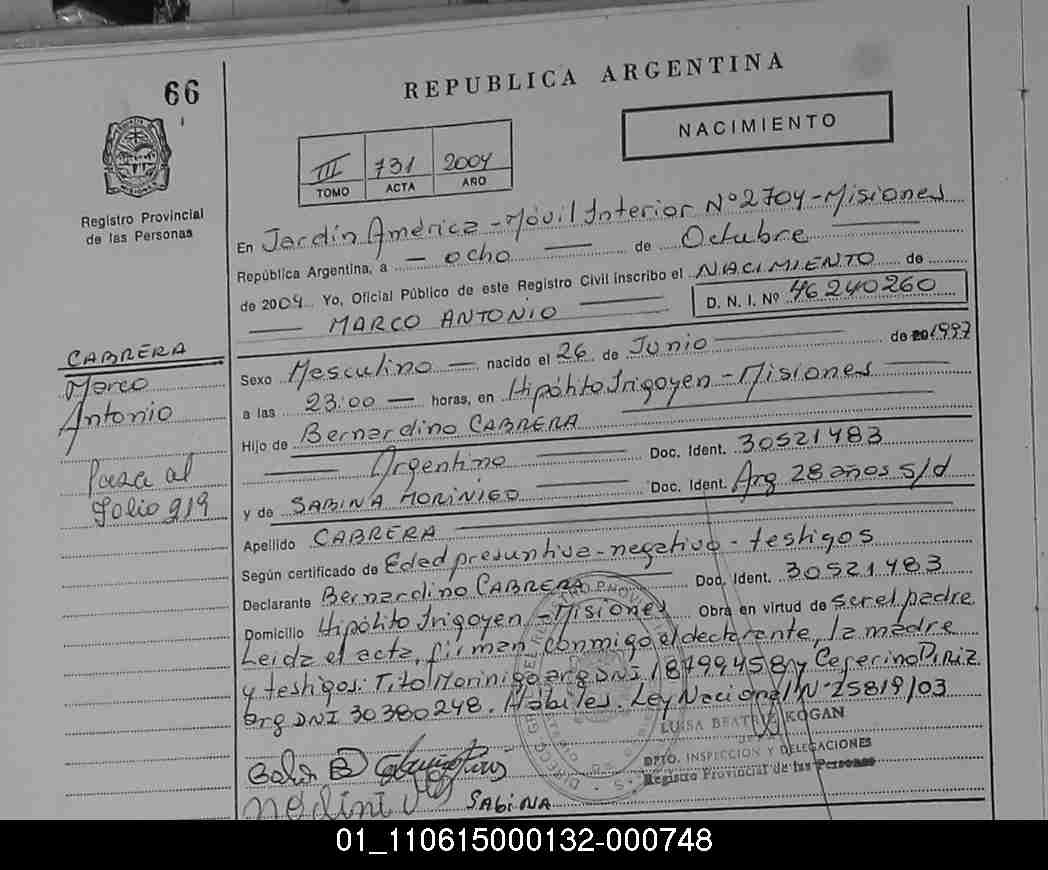 66
REPUBLICA ARGENTINA
NACIMIENTO
III 731 2004
TOMO ACTA AÑO
Registro Provincial
de las Personas
En Jardín América - Móvil Interior Nº 2704 - Misiones
República Argentina, a - ocho de Octubre
de 2004 Yo, Oficial Público de este Registro Civil inscribo el NACIMIENTO de
MARCO ANTONIO D. N. I. Nº 46240260
CABRERA
Marco
Antonio
Pasa al
folio 919
Sexo Masculino nacido el 26 de Junio de 1997
a las 23:00 horas, en Hipólito Irigoyen - Misiones
Hijo de Bernardino CABRERA
Argentino Doc. Ident. 30521483
y de SABINA MORINIGO Doc. Ident. Arg 28 años s/d
Apellido CABRERA
Según certificado de Edad presuntiva - negativo - testigos
Declarante Bernardino CABRERA Doc. Ident. 30521483
Domicilio Hipólito Irigoyen - Misiones Obra en virtud de ser el padre
Leída el acta, firman conmigo el declarante, la madre
y testigos: Tito Morinigo arg DNI 18799458 y Ceferino Piriz
arg DNI 30380248. Hábiles. Ley Nacional Nº 25819/03
LUISA BEATRIZ KOGAN
DPTO. INSPECCION Y DELEGACIONES
Registro Provincial de las Personas
SABINA
01_110615000132-000748